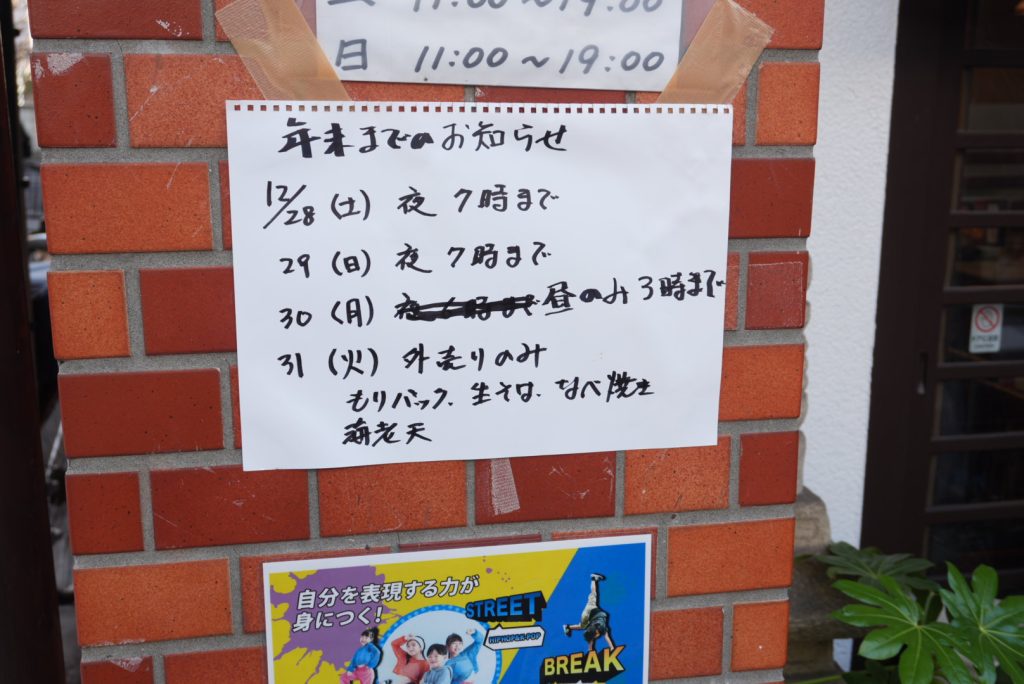 11:00～19:00
日 11:00～19:00
年末までのお知らせ
12/28(土) 夜 7時まで
29(日) 夜 7時まで
30(月) 昼のみ 3時まで
31(火) 外売りのみ
もりパック、生そば、なべ焼き
海老天
自分を表現する力が
身につく!
STREET
HIPHOP&K-POP
BREAK